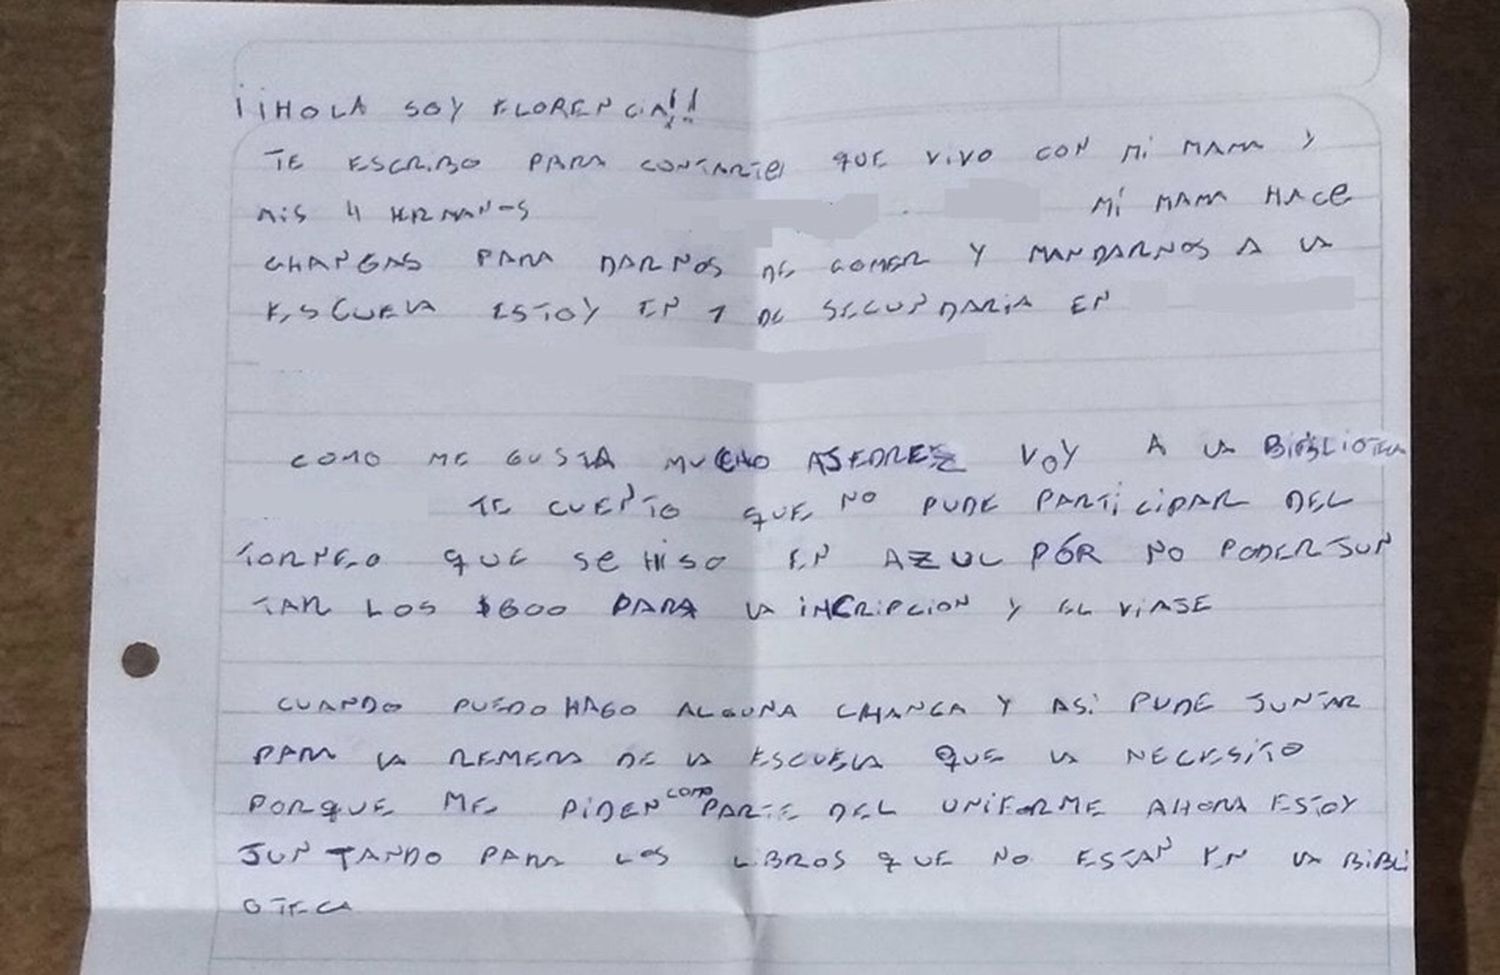 ¡¡HOLA SOY FLORENCIA!!
TE ESCRIBO PARA CONTARTE QUE VIVO CON MI MAMA Y
MIS 4 HERMANOS MI MAMA HACE
CHANGAS PARA DARNOS DE COMER Y MANDARNOS A LA
ESCUELA ESTOY EN 1 DE SECUNDARIA EN
COMO ME GUSTA MUCHO ASEDREZ VOY A LA BIBLIOTECA
TE CUENTO QUE NO PUDE PARTICIPAR DEL
TORNEO QUE SE HISO EN AZUL POR NO PODER JUN
TAR LOS $600 PARA LA INCRIPCION Y EL VIAJE
CUANDO PUEDO HAGO ALGUNA CHANGA Y ASI PUDE JUNTAR
PARA LA REMERA DE LA ESCUELA QUE LA NECESITO
PORQUE ME PIDEN COMO PARTE DEL UNIFORME AHORA ESTOY
JUNTANDO PARA LOS LIBROS QUE NO ESTAN EN LA BIBLI
OTECA